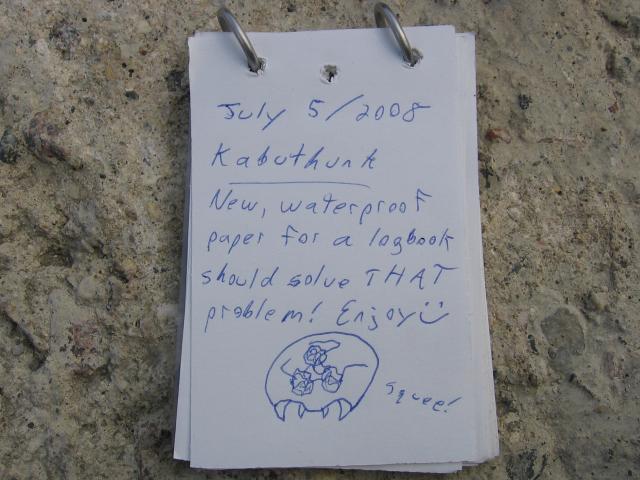 July 5/2008
Kabuthunk
New, waterproof
paper for a logbook
should solve THAT
problem! Enjoy
squee!